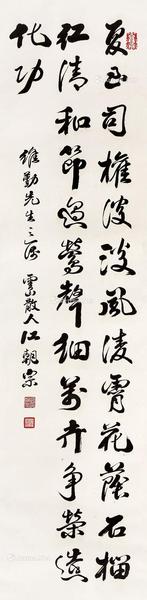 夏司權淡風凌霄花蔭石榴
紅清和節過鶯聲細萬卉爭榮造
化功
維勤先生之屬 雲散人江朝宗